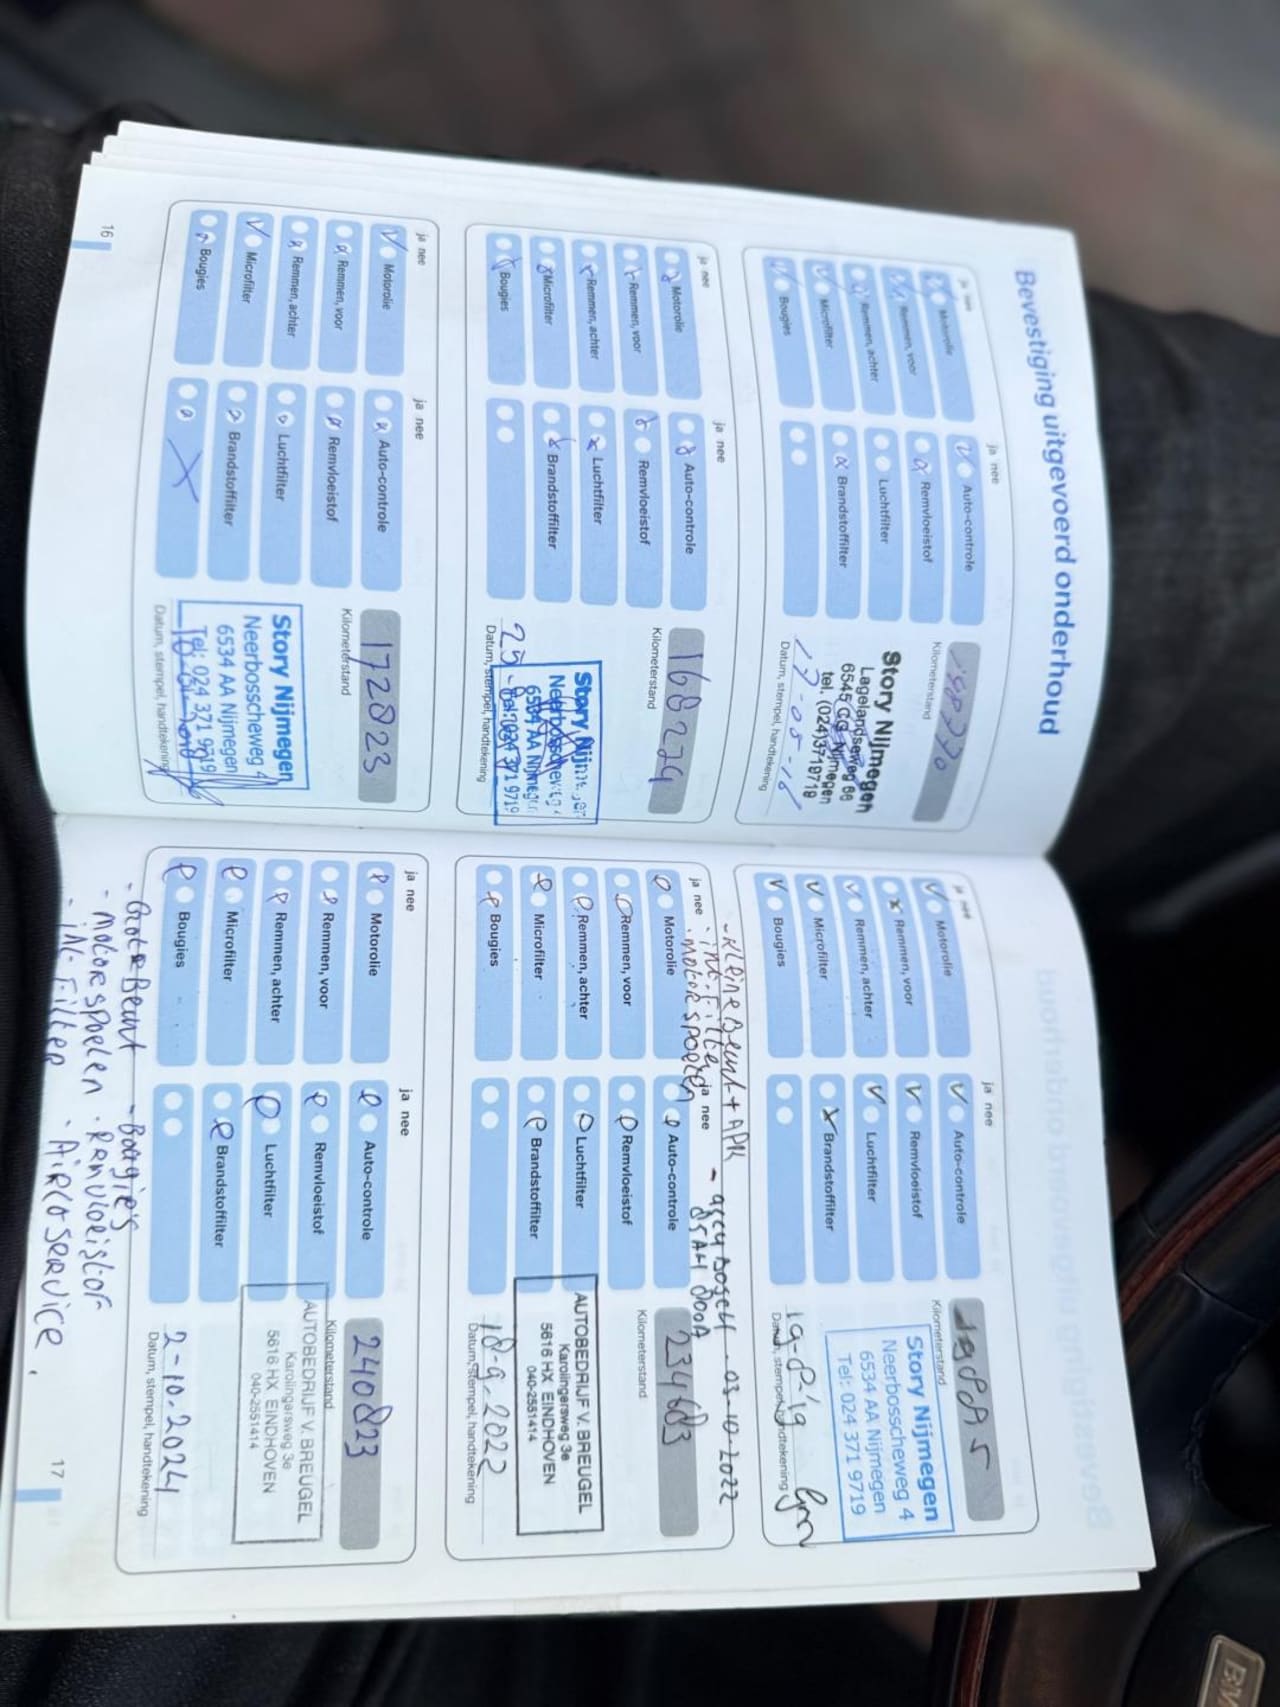 Bevestiging uitgevoerd onderhoud
ja nee
ja nee
Motorolie
Auto-controle
Remmen, voor
Remvloeistof
Remmen, achter
Luchtfilter
Microfilter
Brandstoffilter
Bougies
Kilometerstand
Story Nijmegen
Lagelandseweg 66
6545 CG Nijmegen
tel. (024)3719719
Datum, stempel, handtekening
ja nee
ja nee
Motorolie
Auto-controle
Remmen, voor
Remvloeistof
Remmen, achter
Luchtfilter
Microfilter
Brandstoffilter
Bougies
168224
Kilometerstand
Story Nijmegen
Neerbosscheweg 4
6534 AA Nijmegen
Tel: 024 371 9719
Datum, stempel, handtekening
ja nee
ja nee
Motorolie
Auto-controle
Remmen, voor
Remvloeistof
Remmen, achter
Luchtfilter
Microfilter
Brandstoffilter
Bougies
172823
Kilometerstand
Story Nijmegen
Neerbosscheweg 4
6534 AA Nijmegen
Tel: 024 371 9719
Datum, stempel, handtekening
16
ja nee
ja nee
Motorolie
Auto-controle
Remmen, voor
Remvloeistof
Remmen, achter
Luchtfilter
Microfilter
Brandstoffilter
Bougies
Kilometerstand
Story Nijmegen
Neerbosscheweg 4
6534 AA Nijmegen
Tel: 024 371 9719
19-8-19
Datum, stempel, handtekening
- Kleine Beurt + APK - 03-10-2022
- int. Filter
- motor spoelen
ja nee
ja nee
Motorolie
Auto-controle
Remmen, voor
Remvloeistof
Remmen, achter
Luchtfilter
Microfilter
Brandstoffilter
Bougies
234683
Kilometerstand
AUTOBEDRIJF V. BREUGEL
Karolingersweg 3e
5616 HX EINDHOVEN
040-2551414
18-9-2022
Datum, stempel, handtekening
ja nee
ja nee
Motorolie
Auto-controle
Remmen, voor
Remvloeistof
Remmen, achter
Luchtfilter
Microfilter
Brandstoffilter
Bougies
240823
Kilometerstand
AUTOBEDRIJF V. BREUGEL
Karolingersweg 3e
5616 HX EINDHOVEN
040-2551414
2-10-2024
Datum, stempel, handtekening
- Grote Beurt - Bougie's
- motor spoelen - Remvloeistof
- int Filter - Airco service.
17